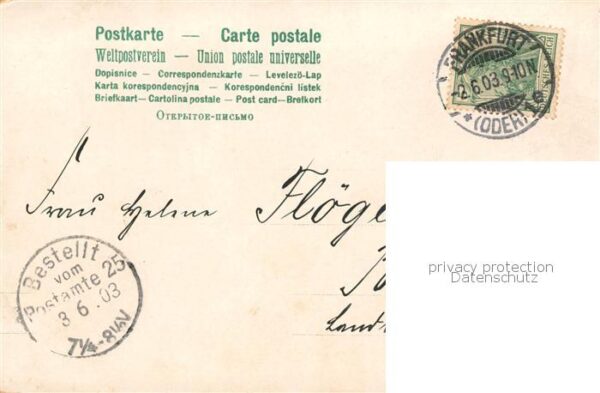 Postkarte — Carte postale
Weltpostverein — Union postale universelle
Dopisnice — Correspondenzkarte — Levelező-Lap
Karta korespondencyjna — Korespondenční lístek
Briefkaart — Cartolina postale — Post card — Brefkort
Открытое-письмо
FRANKFURT
-2.6.03.9-10N
* (ODER) 1
Frau Helene Flöge
privacy protection
Datenschutz
Bestellt
vom
Postamte 25
3 6 .03
7¼-8¼V